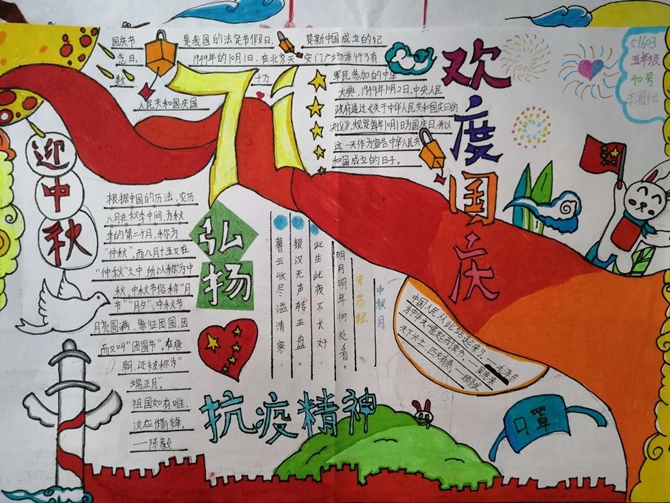 国庆节
是我国的法定节假日,
是新中国成立的纪
念日,
1949年的10月1日,在北京天
安门广场举行有
数
十万
军民参加的中华
人民共和国庆国
大典,1949年10月2日,中央人民
政府通过《关于中华人民共和国国庆日的
决议》,规定每年10月1日为国庆日,并以
这一天作为宣告中华人民共
和国成立的日子。
71
欢度国庆
C1603
五年级
40号
迎中秋
根据中国的历法,农历
八月在秋季中间,为秋
季的第二个月,称为
“仲秋”,而八月十五又在
“仲秋”之中所以称为中
秋,中秋节俗称“月
节”“月夕”,中秋节
月亮圆满,象征团圆,因
而又叫“团圆节”,在唐
朝,还被称为“
端正月。
祖国如有难,
汝应作前锋,
—陈毅
弘扬
中秋月
宋 苏轼
暮云收尽溢清寒
银汉无声转玉盘
此生此夜不长好
明月明年何处看。
中国人民从此站起来了。
抗疫精神
口罩